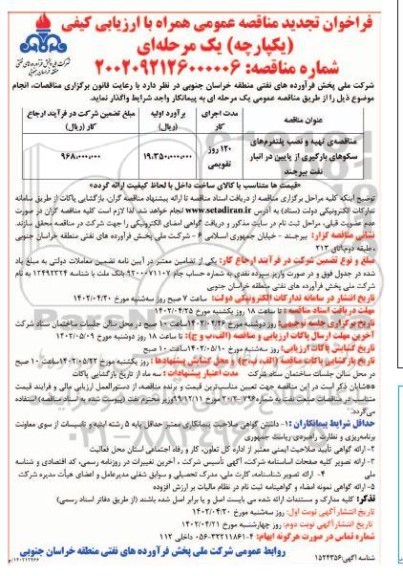 فراخوان تجدید مناقصه عمومی همراه با ارزیابی کیفی
(یکپارچه) یک مرحله‌ای
شماره مناقصه: ۲۰۰۲۰۹۲۱۲۶۰۰۰۰۰۶
شرکت ملی پخش فرآورده های نفتی منطقه خراسان جنوبی در نظر دارد با رعایت قانون برگزاری مناقصات، انجام
موضوع ذیل را از طریق مناقصه عمومی یک مرحله ای به پیمانکار واجد شرایط واگذار نماید.
عنوان مناقصه
مدت اجرای کار
برآورد اولیه (ریال)
مبلغ تضمین شرکت در فرآیند ارجاع کار (ریال)
مناقصه‌ی تهیه و نصب پلتفرم‌های سکوهای بارگیری از پایین در انبار نفت بیرجند
۱۲۰ روز تقویمی
۱۹،۳۵۰،۰۰۰،۰۰۰
۹۶۸،۰۰۰،۰۰۰
«قیمت ها متناسب با کالای ساخت داخل با لحاظ کیفیت ارائه گردد»
توضیح اینکه کلیه مراحل برگزاری مناقصه از دریافت اسناد مناقصه تا ارائه پیشنهاد مناقصه گران، بازگشایی پاکات از طریق سامانه
تدارکات الکترونیکی دولت (ستاد) به آدرس www.setadiran.ir انجام خواهد شد. لذا لازم است کلیه مناقصه گران در صورت
عدم عضویت قبلی، مراحل ثبت نام در سایت مذکور و دریافت گواهی امضای الکترونیکی را جهت شرکت در مناقصه محقق سازند.
نشانی مناقصه گزار: بیرجند - خیابان جمهوری اسلامی ۴ - شرکت ملی پخش فرآورده های نفتی منطقه خراسان جنوبی
، طبقه دوم، اتاق ۲۱۳
مبلغ و نوع تضمین شرکت در فرآیند ارجاع کار: یکی از تضامین معتبر در آیین نامه تضمین معاملات دولتی به مبلغ یاد
شده در جدول فوق و در صورت واریز سپرده نقدی به شماره حساب جام
شرکت ملی پخش فرآورده های نفتی منطقه خراسان جنوبی
تاریخ انتشار در سامانه تدارکات الکترونیکی دولت: ساعت ۷ صبح روز سه‌شنبه مورخ ۱۴۰۲/۰۴/۲۰
مهلت دریافت اسناد مناقصه: تا ساعت ۱۸ روز یکشنبه مورخ ۱۴۰۲/۰۴/۲۵
تاریخ برگزاری جلسه توجیهی: روز دوشنبه مورخ ۱۴۰۲/۰۴/۲۶ ساعت ۱۰ صبح در محل سالن جلسات ساختمان ستاد شرکت
آخرین مهلت ارسال پاکات ارزیابی و مناقصه (الف، ب و ج): تا ساعت ۱۸ روز دوشنبه مورخ ۱۴۰۲/۰۵/۰۹
تاریخ گشایش پاکات ارزیابی: روز سه‌شنبه مورخ ۱۴۰۲/۰۵/۱۰ ساعت ۱۰ صبح
تاریخ بازگشایی پاکات مناقصه (الف، ب، ج) و محل گشایش پیشنهادها: روز یکشنبه مورخ ۱۴۰۲/۰۵/۲۲ ساعت ۱۰ صبح
در محل سالن جلسات ساختمان ستاد شرکت مدت اعتبار پیشنهادات: سه ماه از تاریخ بازگشایی پاکات
حداقل شرایط پیمانکاران: ۱- داشتن گواهی صلاحیت پیمانکاری معتبر حداقل پایه ۵ رشته ابنیه و تاسیسات از سوی معاونت
برنامه‌ریزی و نظارت راهبردی ریاست جمهوری
۲- ارائه گواهی تأیید صلاحیت ایمنی معتبر از اداره کل تعاون، کار و رفاه اجتماعی استان محل فعالیت
۳- ارائه تصویر کلیه صفحات اساسنامه شرکت، آگهی تأسیس شرکت، آخرین تغییرات در روزنامه رسمی، کد اقتصادی و شناسه
ملی ۴- ارائه تصویر شناسنامه، کارت ملی، مدرک تحصیلی و سوابق شغلی مدیرعامل و اعضای هیأت مدیره شرکت
۵- ارائه گواهی نمونه امضاء و گواهینامه ثبت نام در نظام مالیات بر ارزش افزوده
تذکر: کلیه مدارک و مستندات ارائه شده می بایست اصل و یا برابر اصل شده باشند (از طریق دفاتر اسناد رسمی)
تاریخ انتشار آگهی نوبت اول: روز سه‌شنبه مورخ ۱۴۰۲/۰۴/۲۰
تاریخ انتشار آگهی نوبت دوم: روز چهارشنبه مورخ ۱۴۰۲/۰۴/۲۱
تماس در صورت هرگونه ابهام: ۴-۰۵۶-۳۲۲۱۱۸۶۱ داخلی ۱۱۲
شناسه آگهی: ۱۵۲۴۳۵۶
روابط عمومی شرکت ملی پخش فرآورده های نفتی منطقه خراسان جنوبی